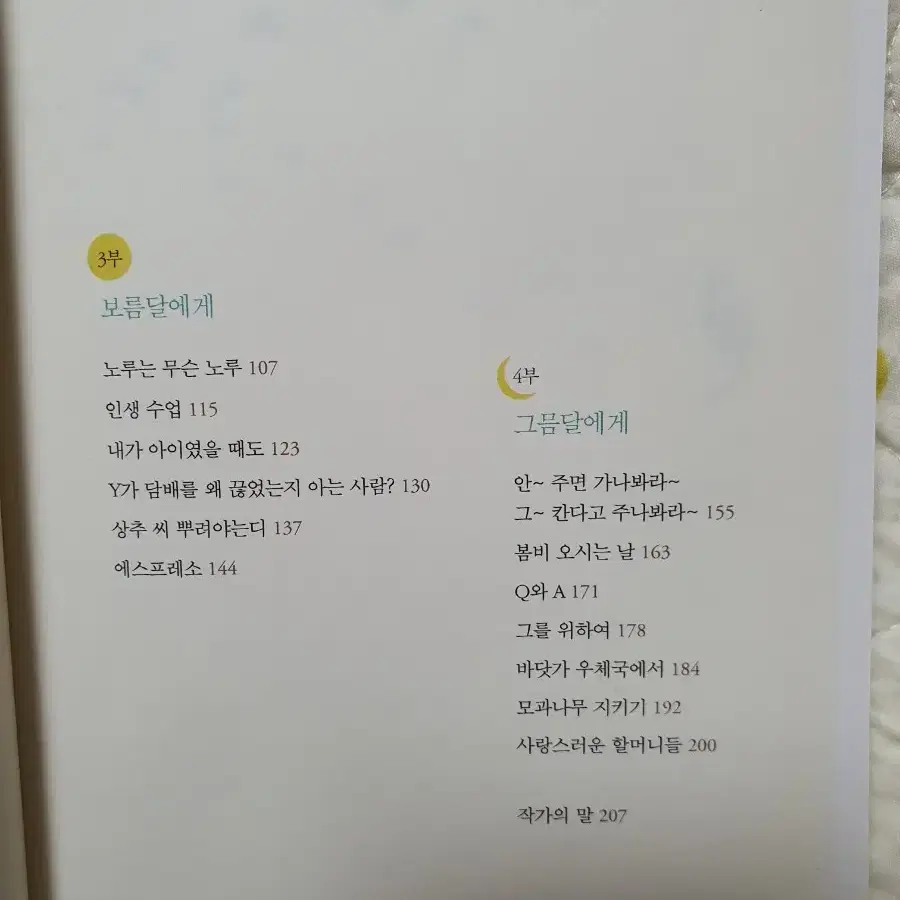 3부
보름달에게
노루는 무슨 노루 107
인생 수업 115
내가 아이였을 때도 123
Y가 담배를 왜 끊었는지 아는 사람? 130
상추 씨 뿌려야는디 137
에스프레소 144
4부
그믐달에게
안~ 주면 가나봐라~
그~ 칸다고 주나봐라~ 155
봄비 오시는 날 163
Q와 A 171
그를 위하여 178
바닷가 우체국에서 184
모과나무 지키기 192
사랑스러운 할머니들 200
작가의 말 207